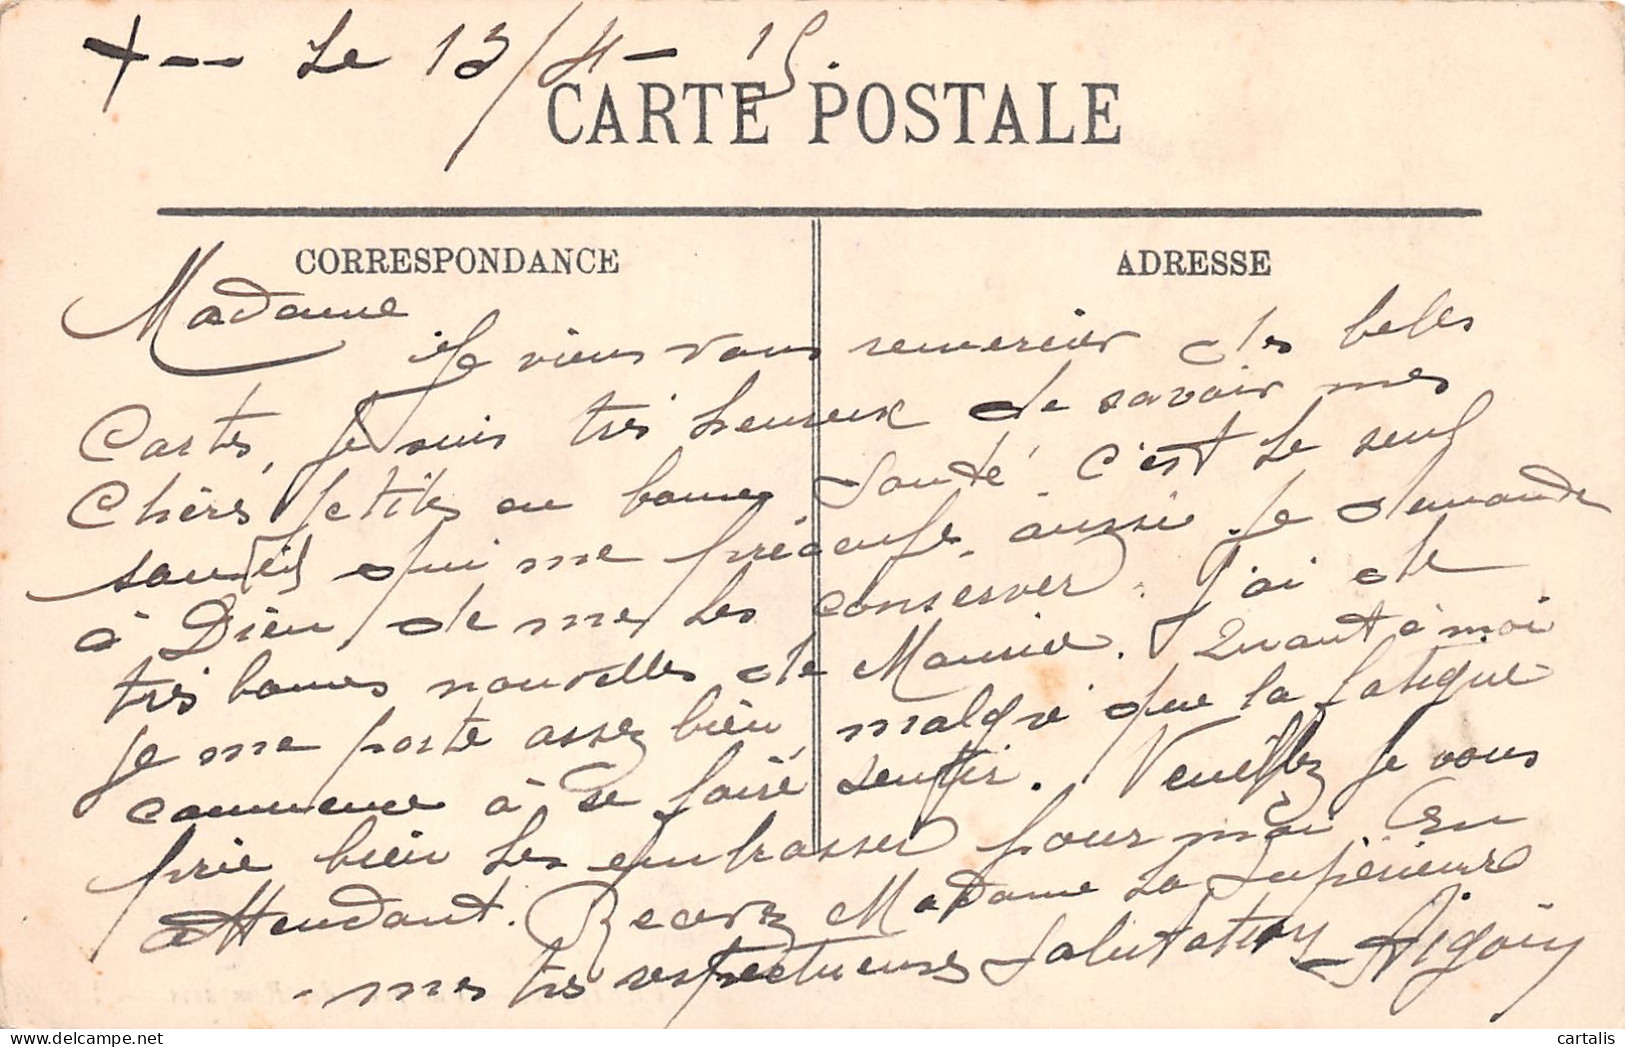 + -- Le 13/4 - 15.
CARTE POSTALE
CORRESPONDANCE
ADRESSE
Madame
je viens vous remercier des belles
Cartes, je suis très heureux de savoir mes
Chères petites en bonnes Santé c'est le seul
souci qui me préocupe, aussi je demande
à Dieu de me les conserver. J'ai de
très bonnes nouvelles de Maurice. Quant à moi
je me porte assez bien malgré que la fatigue
commence à se faire sentir. Veuillez je vous
prie bien les embrasser pour moi. En
attendant. Recevez Madame la Supérieure
mes très respectueuses Salutations Aigoin
cartalis